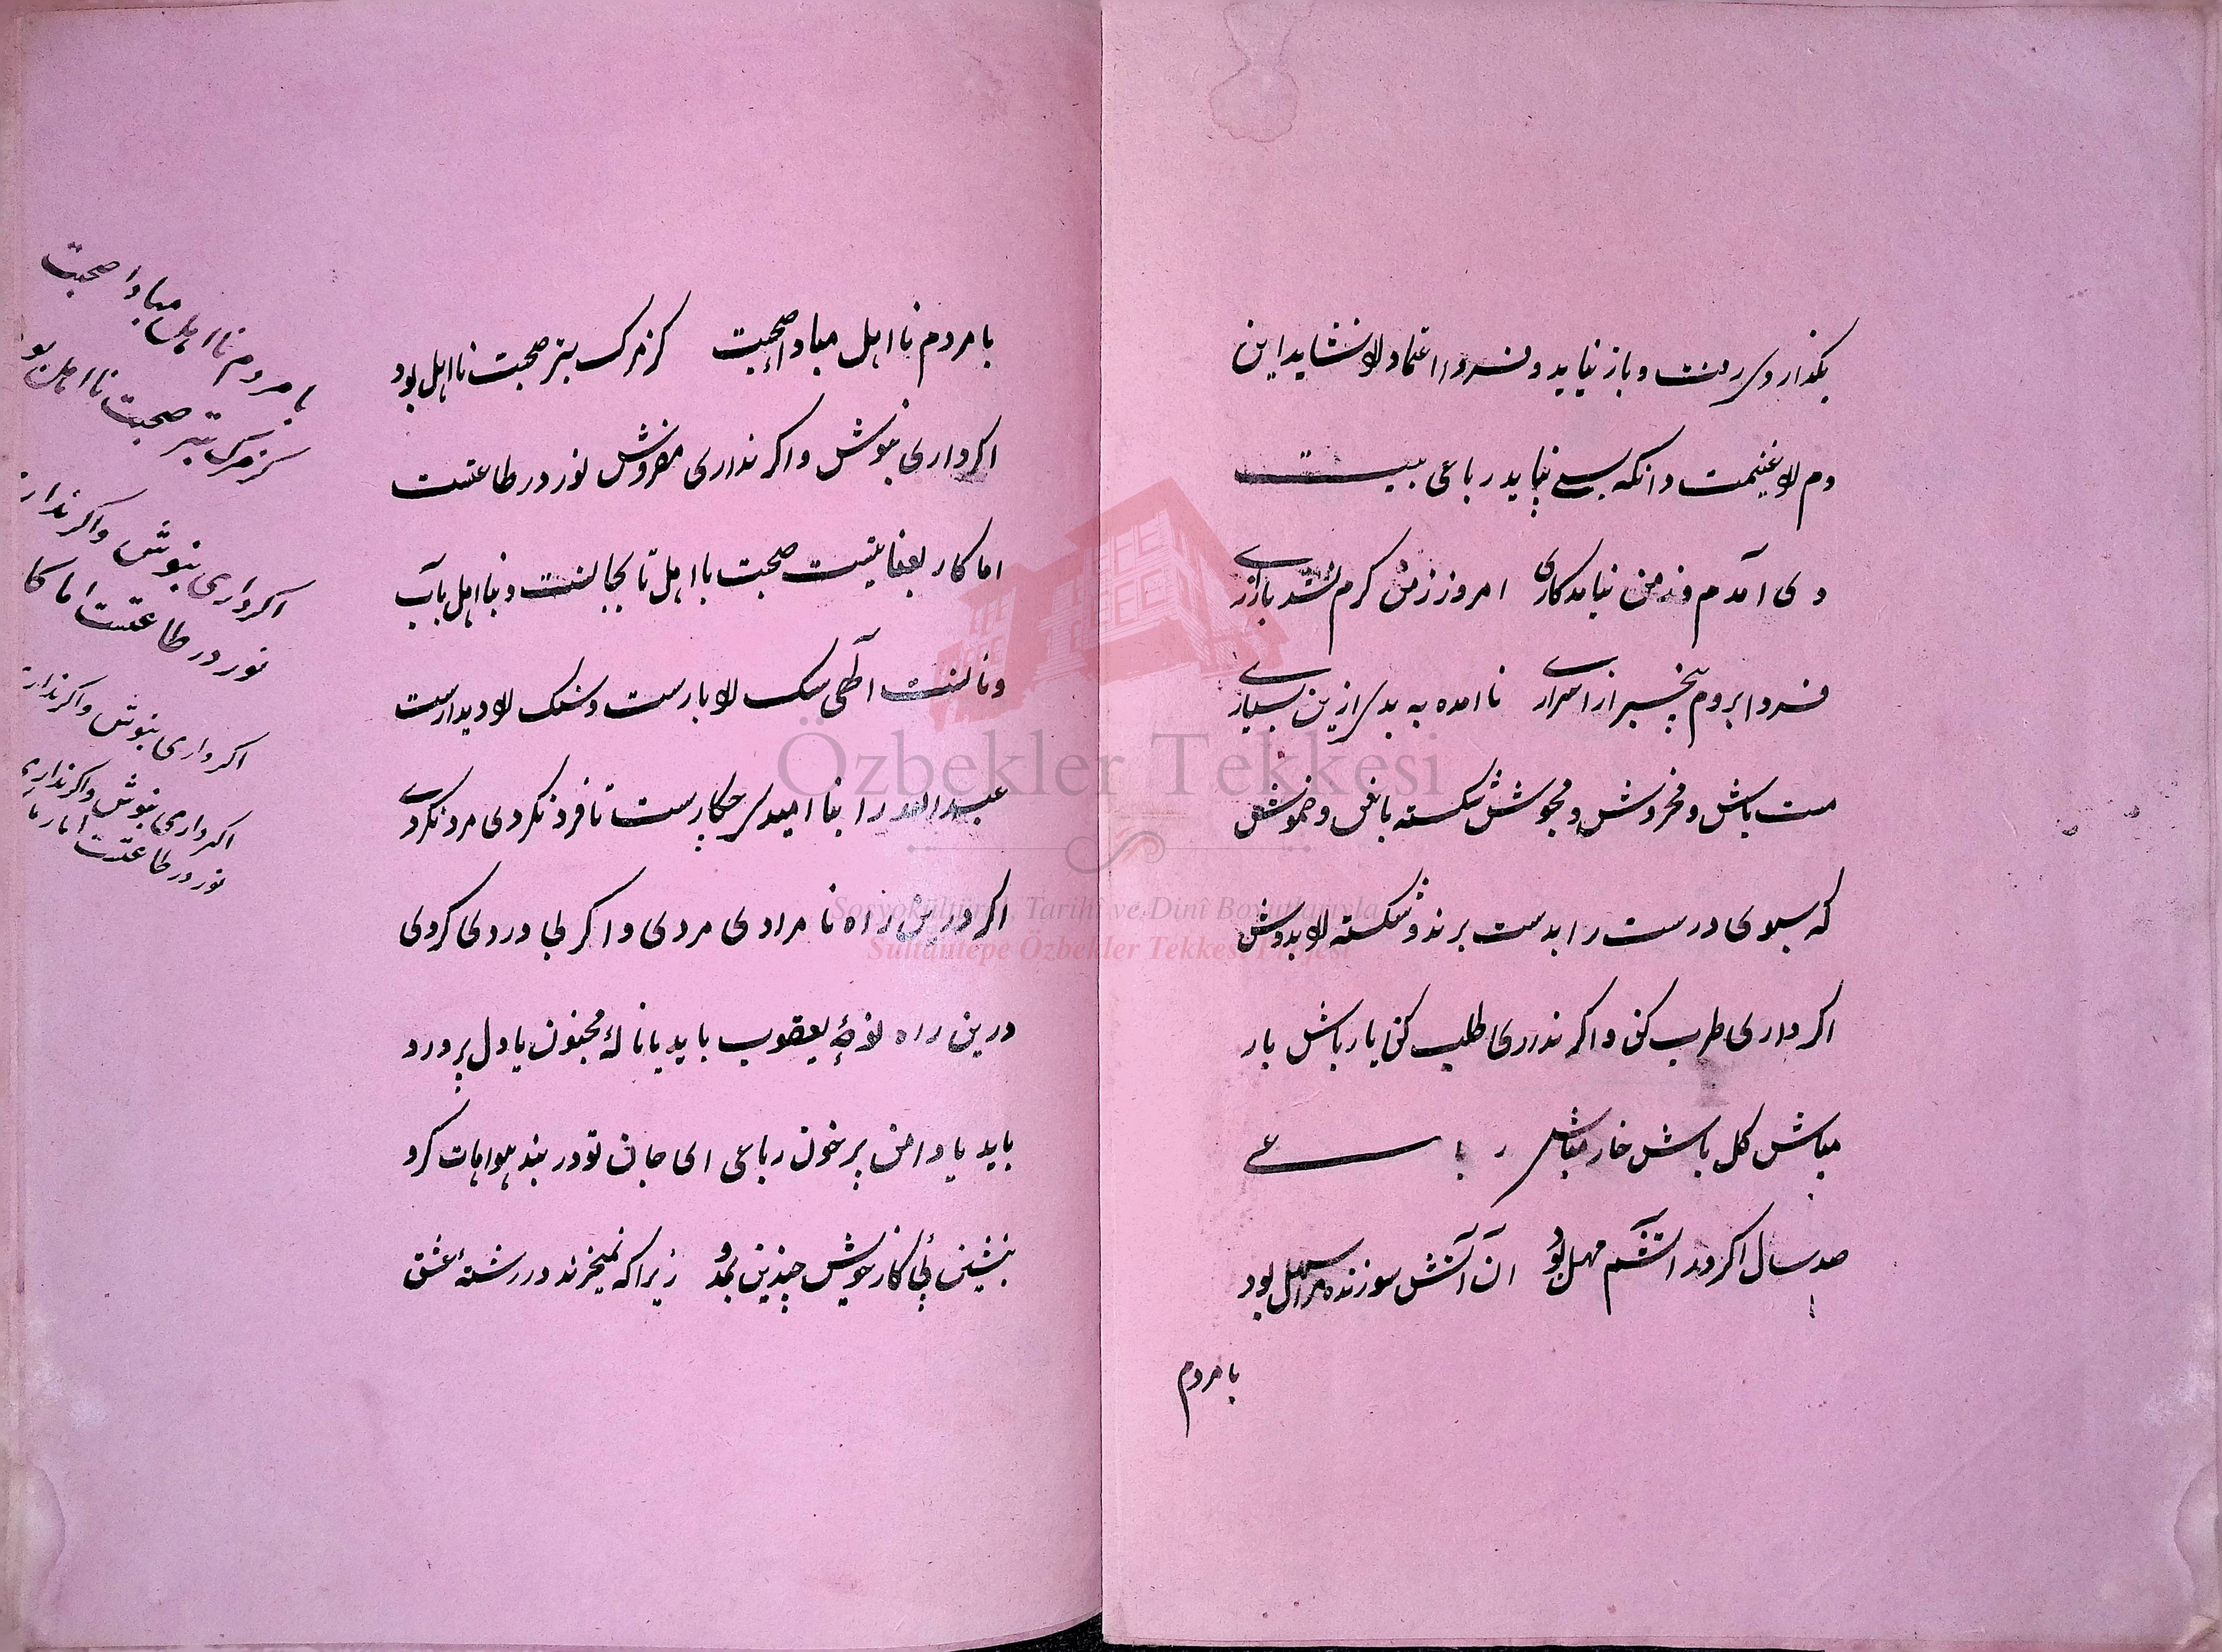 بکذار دی رفت و باز نیاید و فردا اعتماد را نشاید این
دم را غنیمت دانکه بسے نپاید رباعی بیت
دی آمدم و ز من نیامد کاری امروز ز من کرم نشد بازارے
فردا بروم بیخبر از اسرارے نا امده به بدی ازین بسیارے
مست باش و مخروش و مجوش شکسته باش و خموش
که سبوی درست را بدست برند و شکسته را بدوش
اکر داری طرب کن و اکر نداری طلب کن یار باش بار
مباش کل باش خار مباش رباعے
صد سال اکر در اتشم مهل بود ان آتش سوزنده مرا سهل بود
با مردم
با مردم نا اهل مبادا صحبت کز مرک بتر صحبت نا اهل بود
اکر داری بنوش و اکر نداری مفروش نور در طاعتست
اما کار بعنایتست صحبت با اهل تابجانست و نا اهل باب
و نانست الهی سک را بارست و سنک را دیدارست
عبد الله را نا امیدی چکارست تا فرد نکردی مرد نکردے
اکر درین راه نا مرادی مردی و اکر بی دردی کردی
درین راه نوحهٔ یعقوب باید یا نالهٔ مجنون یا دل پر درد
باید یا دامن پر خون رباعی ای جان تو در بند هواهات کرو
بنشین پی کار خویش چندین بمدو زیرا که نمیخرند در رشتهٔ عشق
با مردم نا اهل مبادا صحبت
کز مرک بتر صحبت نا اهل بو
اکر داری بنوش و اکر ندار
نور در طاعتست اما کا
اکر داری بنوش و اکر ندار
اکر داری بنوش و اکر نداری
نور در طاعتست
Özbekler Tekkesi
Sosyokültürel, Tarihî ve Dinî Boyutlarıyla
Sultantepe Özbekler Tekkesi Projesi